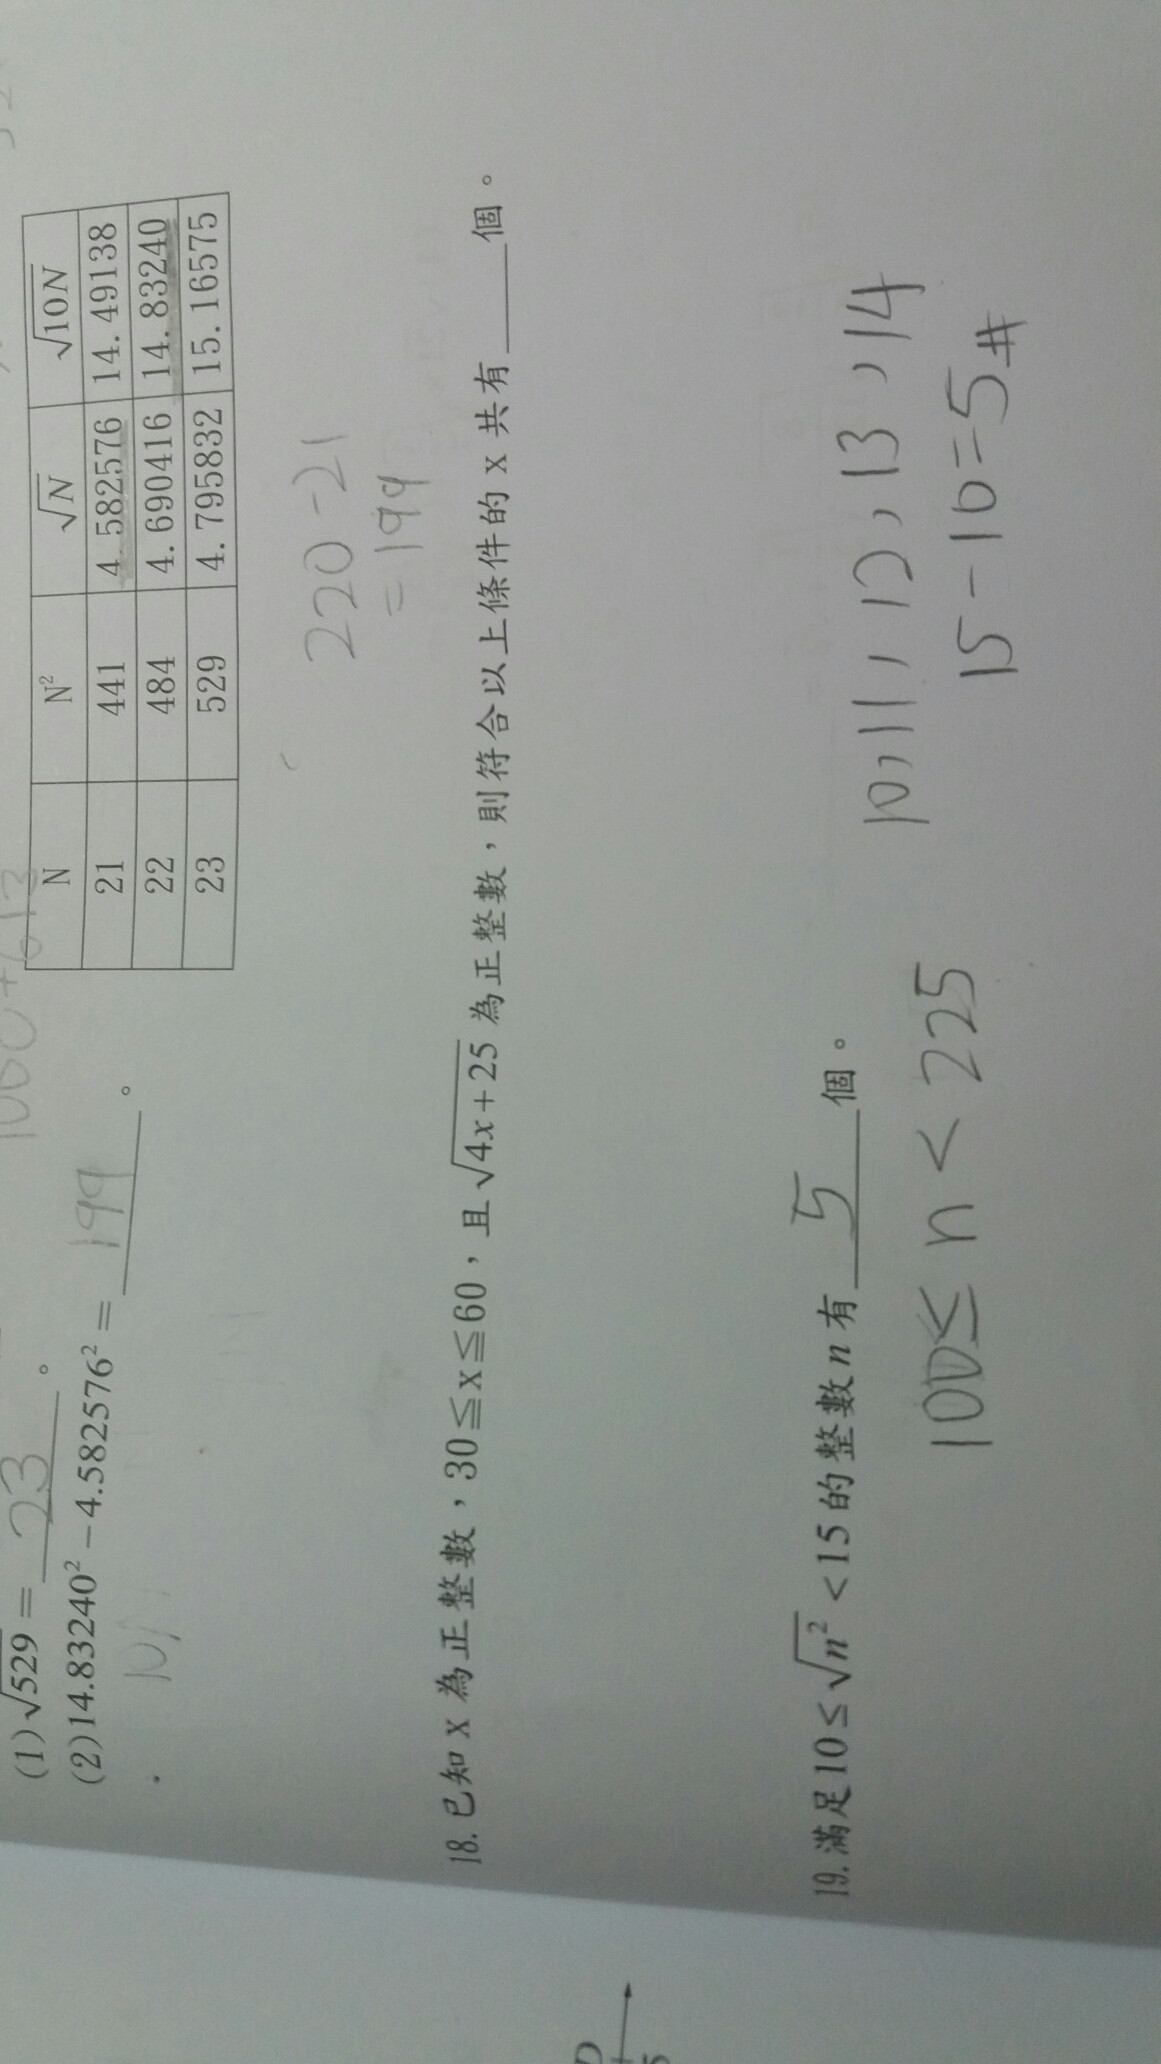 (1)√529 = 23 。
(2)14.83240² − 4.582576² = 199 。
N N² √N √10N
21 441 4.582576 14.49138
22 484 4.690416 14.83240
23 529 4.795832 15.16575
220-21
=199
18.已知 x 為正整數，30≦x≦60，且√4x+25 為正整數，則符合以上條件的 x 共有____個。
19.滿足10≤√n²<15的整數n有 5 個。
10,11,12,13,14
100≤n<225
15-10=5#